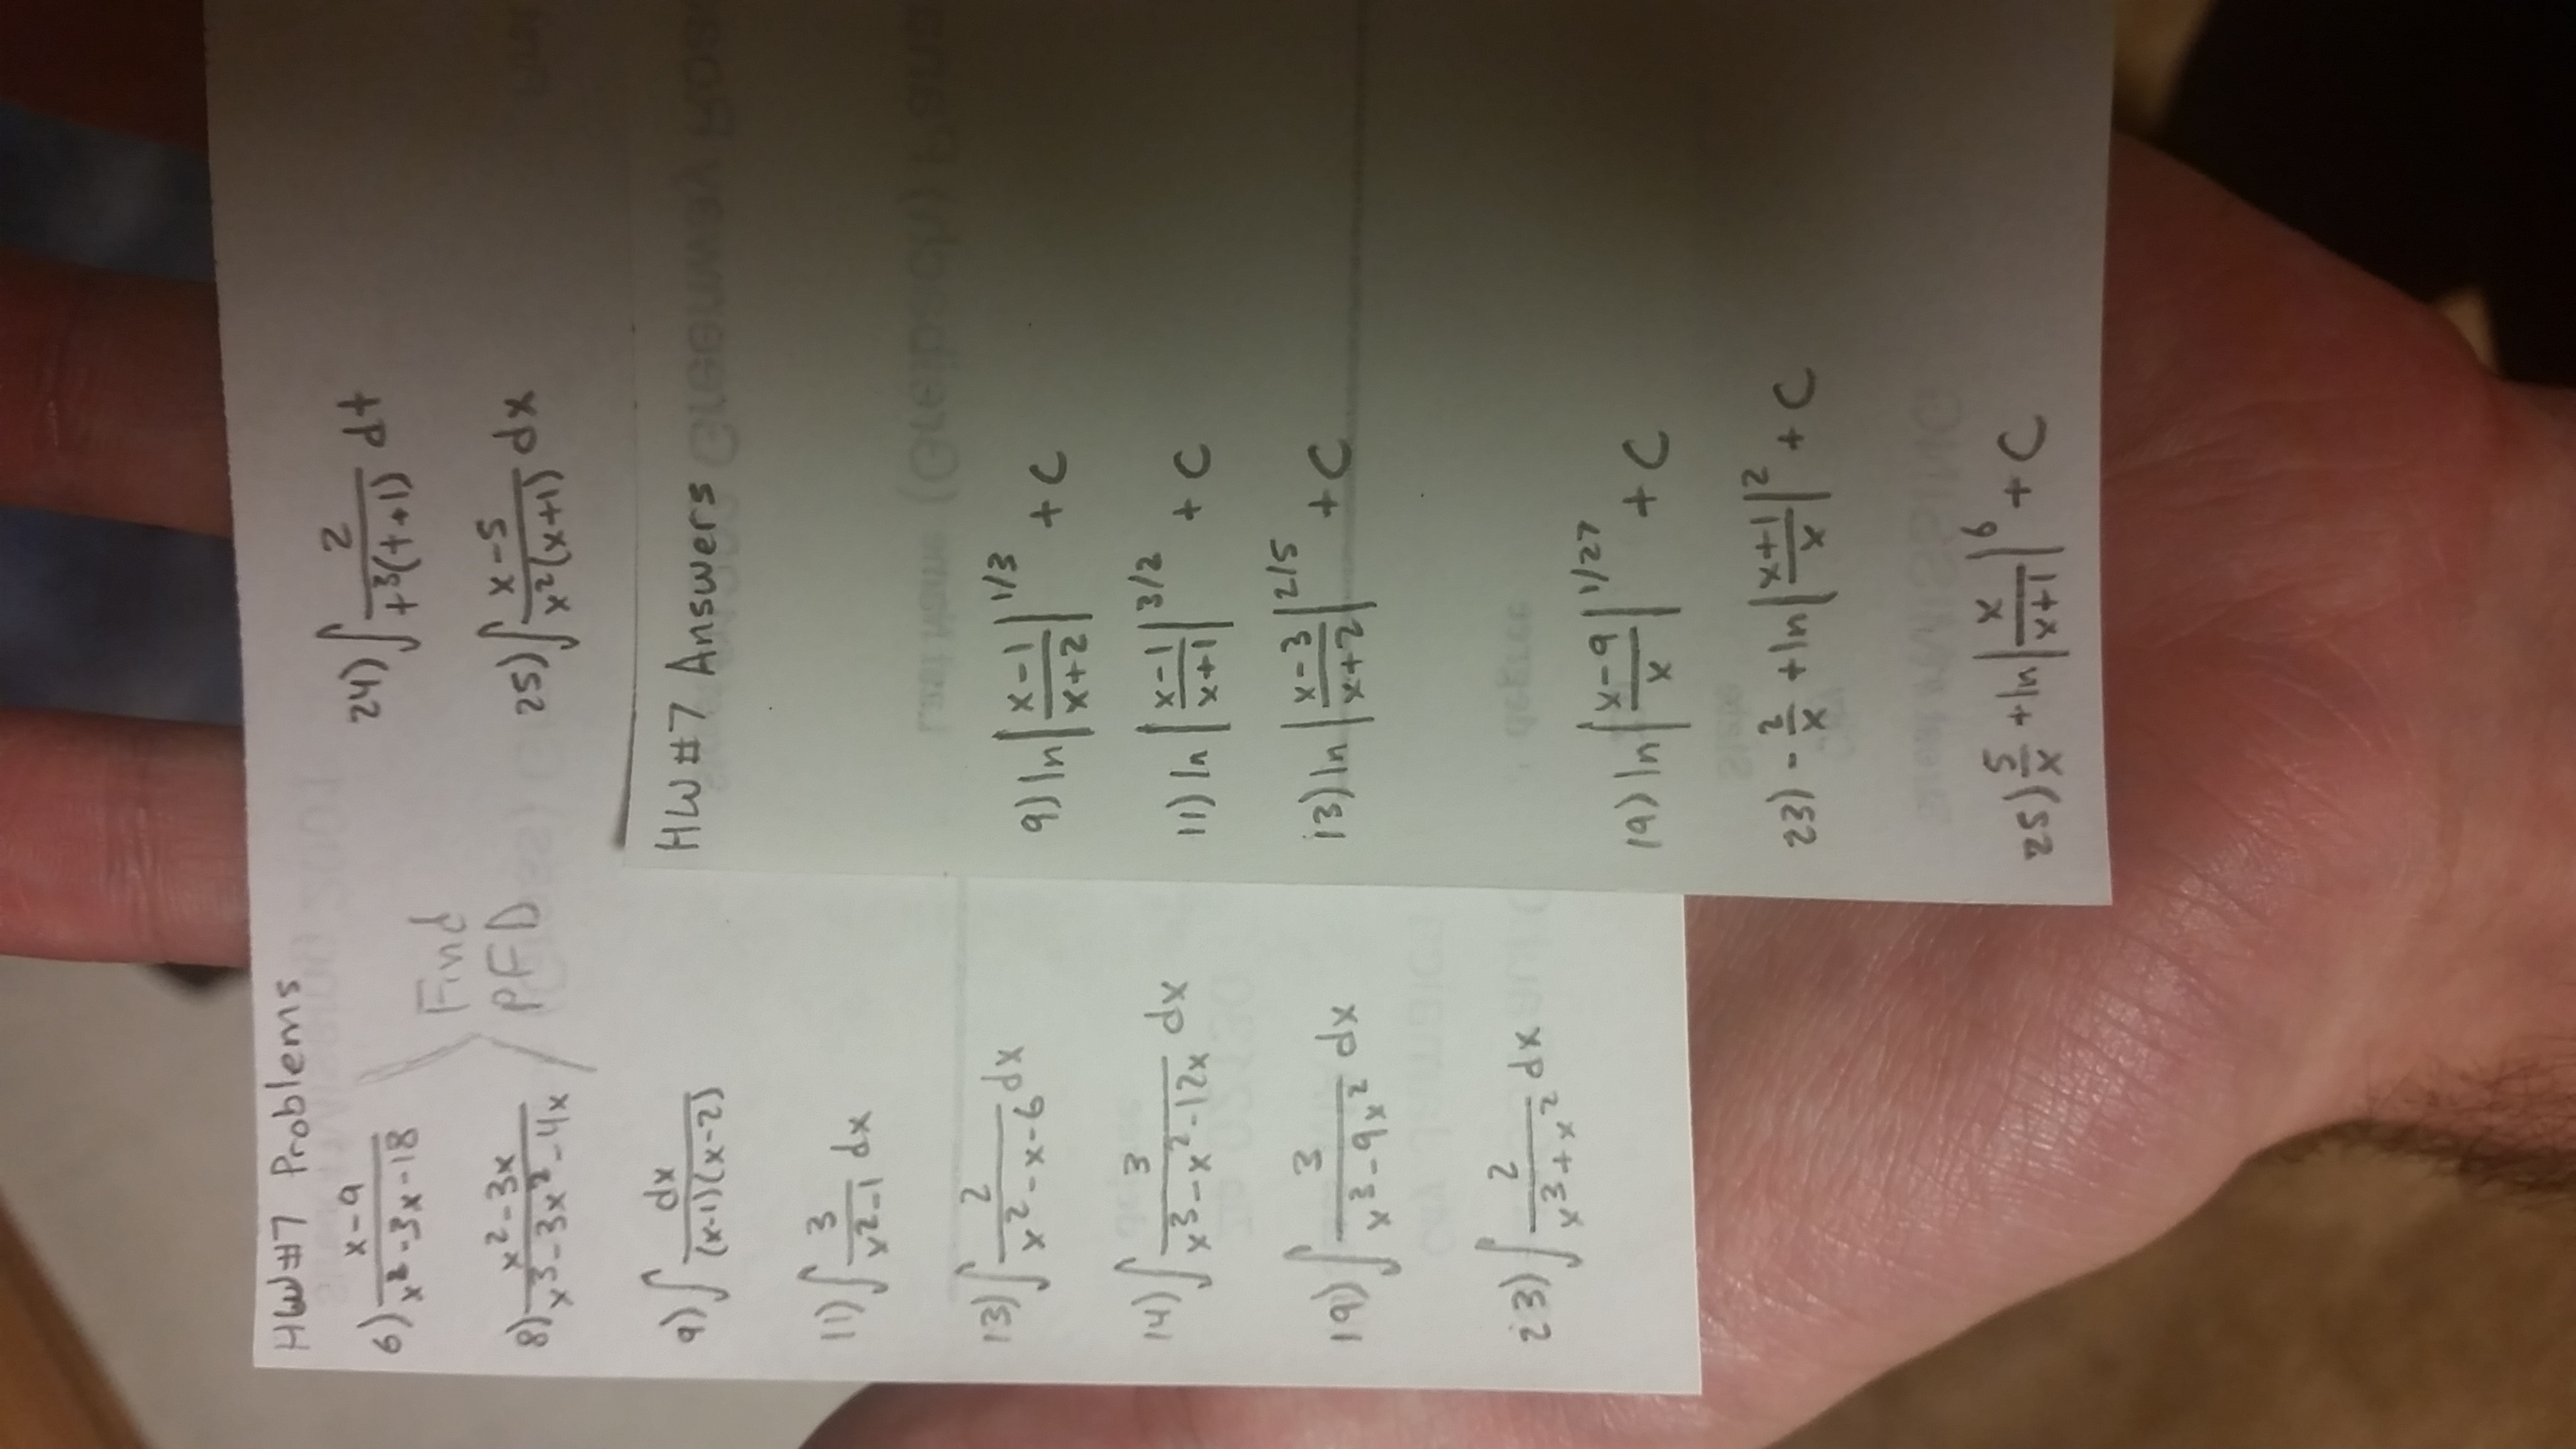 HW#7 Problems
6) x-9/x²-3x-18
8) x²-3x/x³-3x²-4x
Find
PFD
9) ∫ dx/(x-1)(x-2)
11) ∫ 3/x²-1 dx
13) ∫ 2/x²-x-6 dx
14) ∫ 3/x³-x²-12x dx
19) ∫ 3/x³-9x² dx
23) ∫ 2/x³+x² dx
24) ∫ 2/t³(t+1) dt
25) ∫ x-5/x²(x+1) dx
HW#7 Answers
9) ln|x-1/x+2|^1/3 + C
11) ln|x-1/x+1|^3/2 + C
13) ln|x-3/x+2|^2/5 + C
19) ln|x-9/x|^1/27 + C
23) -2/x + ln|x+1/x|² + C
25) 5/x + ln|x/x+1|^6 + C